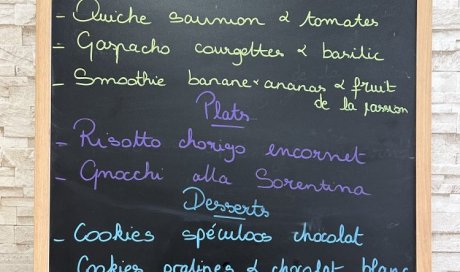 - Quiche saumon & tomates
- Gaspacho courgettes & basilic
- Smoothie banane & ananas & fruit
de la passion
Plats
- Risotto chorizo encornet
- Gnocchi alla Sorentina
Desserts
- Cookies spéculoos chocolat
Cookies pralines & chocolat blanc